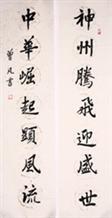 神州騰飛迎盛世
中華崛起顯風流
曾凡書